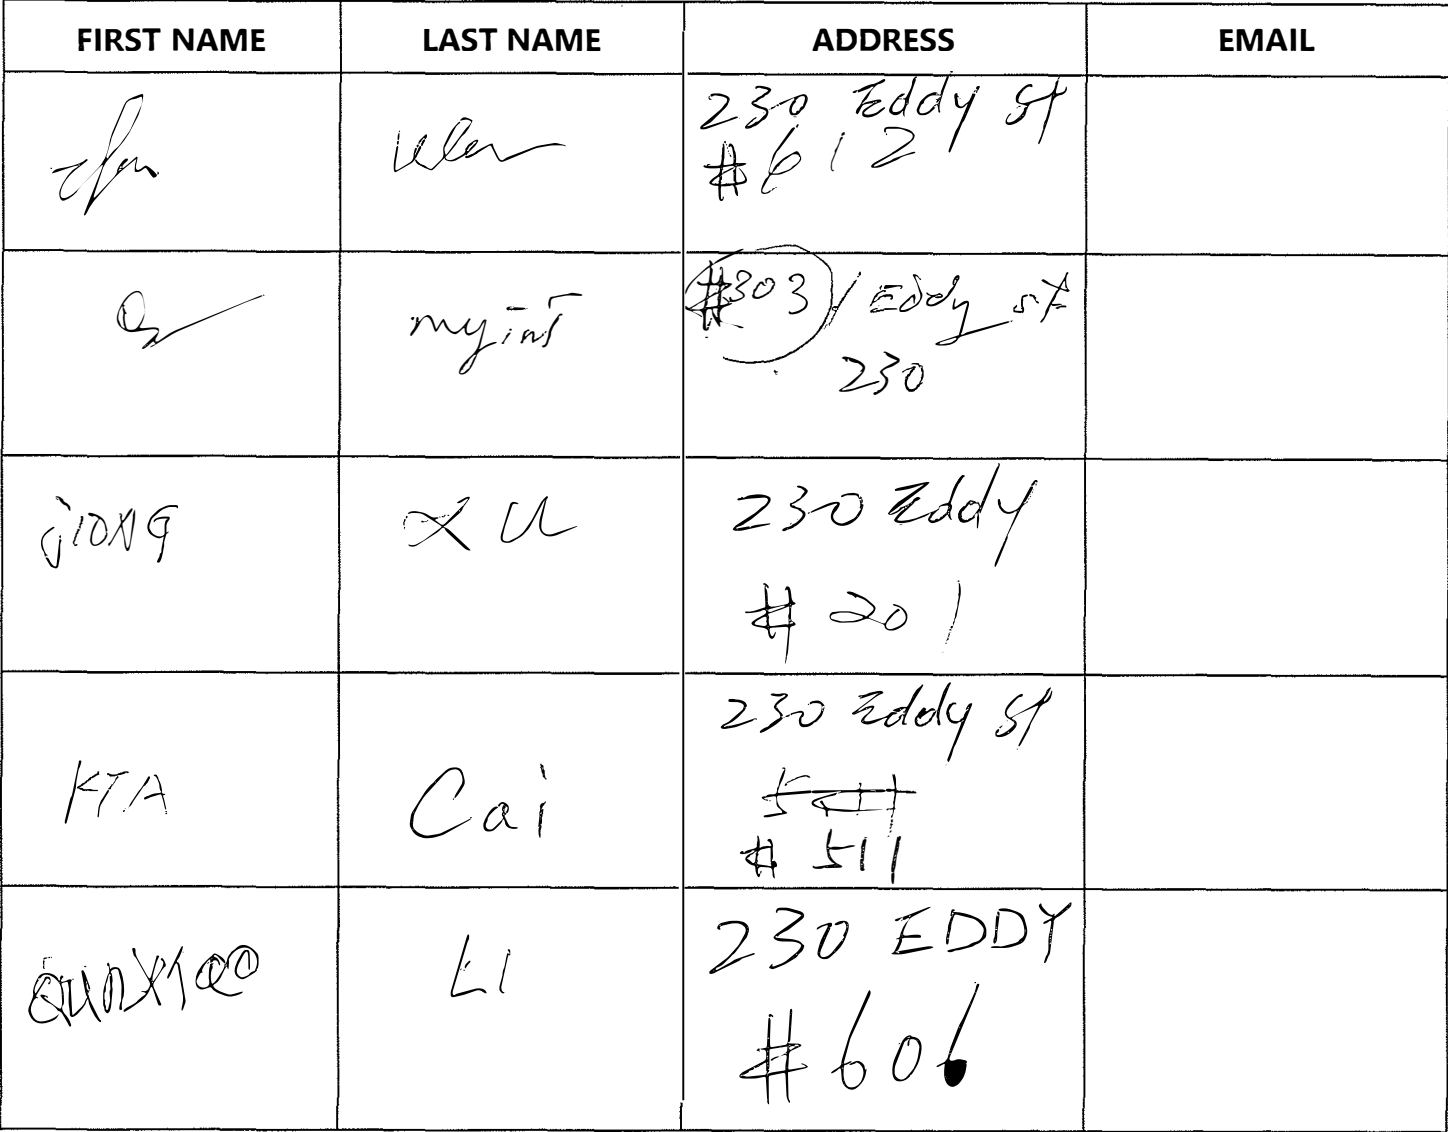 FIRST NAME LAST NAME ADDRESS EMAIL
230 Eddy St
#612
myint #303 / Eddy st
230
jiONG XU 230 Eddy
# 201
230 Eddy St
KTA Cai
# 511
LI 230 EDDY
# 606